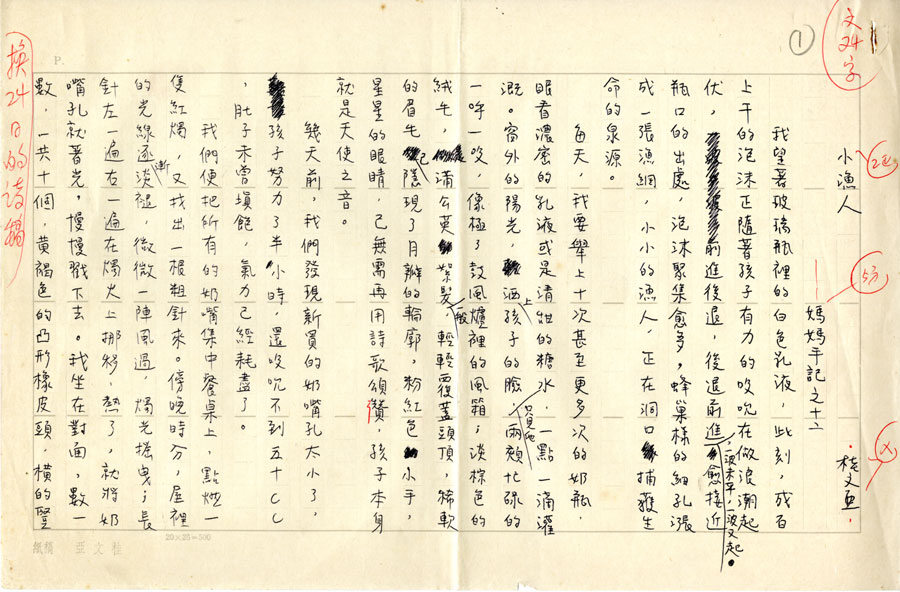 文24字
①
2色
小漁人
5方
——媽媽手記之十二
桂文亞
我望著玻璃瓶裡的白色乳液,此刻,成百
上千的泡沫正隨著孩子有力的吸吮在做浪潮起
伏,前進後退,後退前進,一波未平,一波又起。愈接近
瓶口的出處,泡沫聚集愈多,蜂巢樣的細孔漲
成一張漁網,小小的漁人,正在洞口捕獲生
命的泉源。
每天,我要舉上十次甚至更多次的奶瓶,
眼看濃蜜的乳液或是清甜的糖水,一點一滴灌
溉。窗外的陽光,洒上孩子的臉,只見他兩頰忙碌的
一呼一吸,像極了鼓風爐裡的風箱;淡棕色的
絨毛,蒲公英絮般,輕輕覆蓋頭頂,稀軟
的眉毛已隱現了月辦的輪廓,粉紅色小手,
星星的眼睛,已無需再用詩歌頌讚,孩子本身
就是天使之音。
幾天前,我們發現新買的奶嘴孔太小了,
孩子努力了半小時,還吸吮不到五十CC
,肚子未曾填飽,氣力已經耗盡了。
我們便把所有的奶嘴集中餐桌上,點燃一
隻紅燭,又找出一根粗針來。傍晚時分,屋裡
的光線逐漸淡褪,微微一陣風過,燭光搖曳;長
針左一遍右一遍在燭火上挪移,熱了,就將奶
嘴孔就著光,慢慢戳下去。我坐在對面,數一
數,一共十個,黃褐色的凸形橡皮頭,橫的豎
換24日的詩稿
20×25=500
紙稿 亞文桂